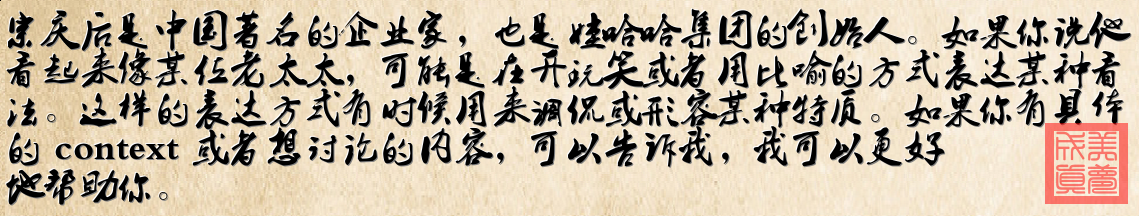 宗庆后是中国著名的企业家，也是娃哈哈集团的创始人。如果你说他
看起来像某位老太太，可能是在开玩笑或者用比喻的方式表达某种看
法。这样的表达方式有时候用来调侃或形容某种特质。如果你有具体
的 context 或者想讨论的内容，可以告诉我，我可以更好
地帮助你。
美夢
成真